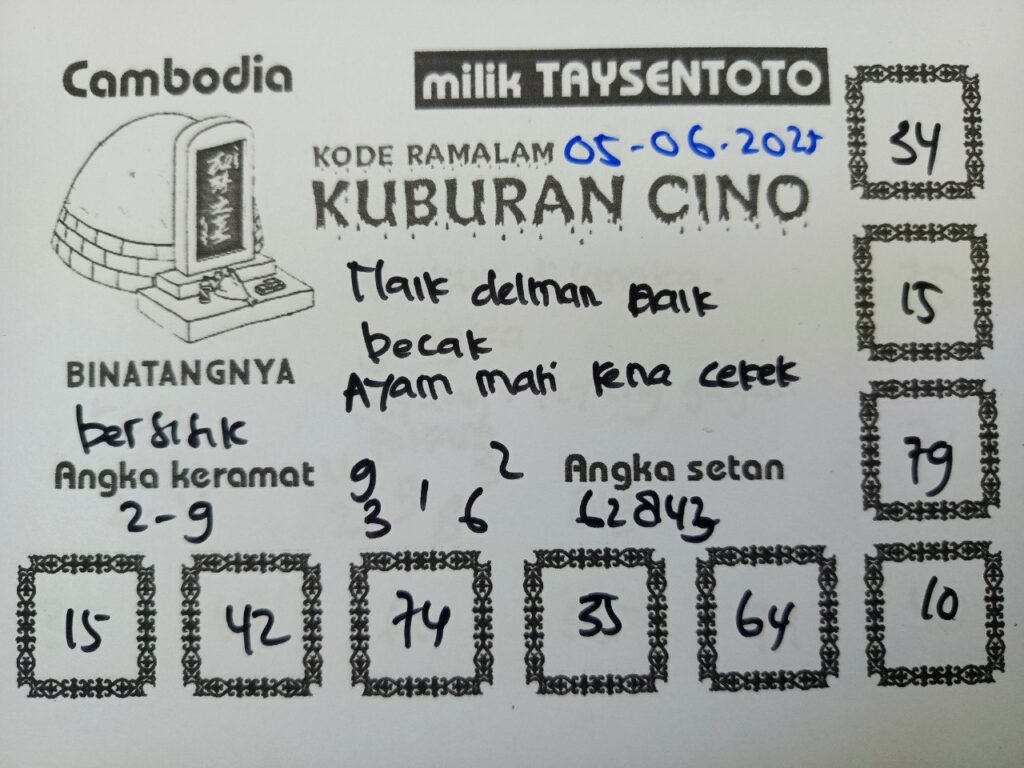 Cambodia
milik TAYSENTOTO
KODE RAMALAM 05-06.2025
KUBURAN CINO
Naik delman naik
becak
Ayam mati kena cekek
BINATANGNYA
bersisik
Angka keramat
2-9
9 2
3 1 6
Angka setan
62843
34
15
79
15 42 74 35 64 10